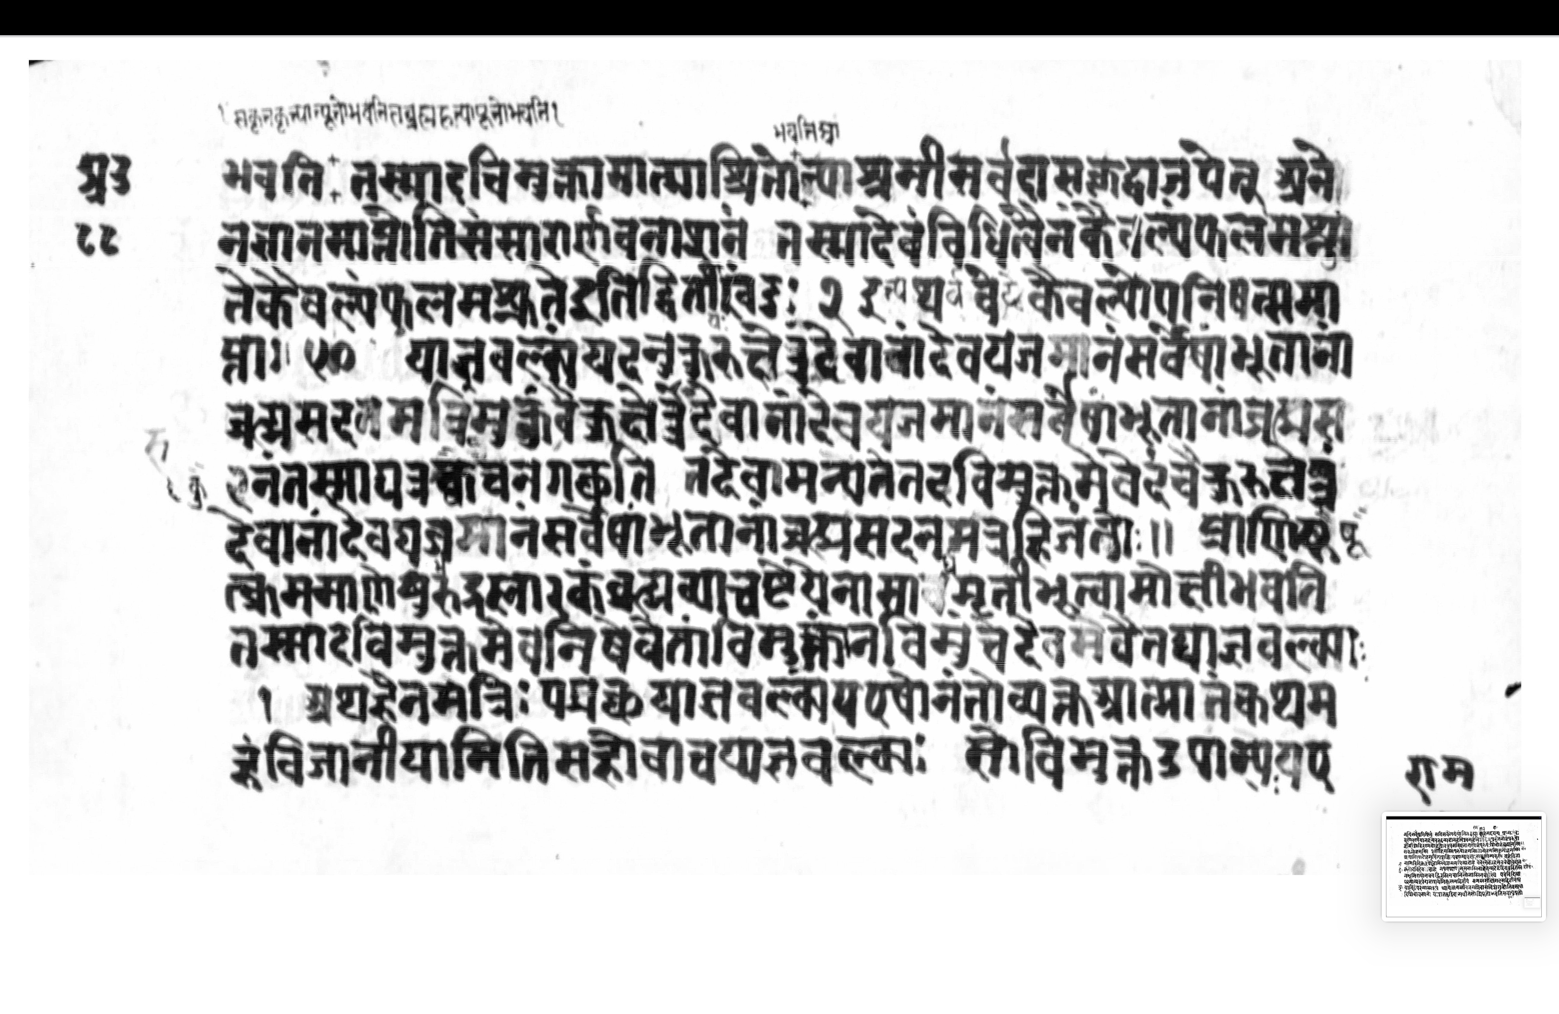 कृतकृत्यात्पूतोभवतिसब्रह्महत्यापूतोभवति।
भवतिस्वां
भवति तस्मादविमुक्तामात्माश्रितोत्याश्रमीसर्वदासकृद्वाजपेत् अने
नज्ञानमाप्नोतिसंसारार्णवनाशनं तस्मादेवंविधित्वैनंकैवल्यंफलमश्नु
तेकैवल्यंफलमश्नुतेइति कैवल्योपनिषत्समा
प्ताः॥ ५० देवानांदेवयजमानंसर्वेषांभूतानां
देवानांदेवयजमानंसर्वेषांभूतानांब्रह्मस
दनंतस्माद्यत्रक्वचनगच्छति तदेवामन्यतेतदविमुक्तमेवेदंवैकुरुक्षेत्रं
देवानांदेवयजमानंसर्वेषांभूतानांब्रह्मसदनमत्रहिजंतोः॥ प्राणेषू
त्क्रममाणेषुरुद्रस्तारकंब्रह्मव्याचष्टेयेनासावमृतीभूत्वामोक्षीभवति
तस्मादविमुक्तमेवनिषेवेताविमुक्तंनविमुंचेदेवमेवैतद्याज्ञवल्क्याः
१ अथहैनमत्रिः पप्रछयाज्ञवल्क्यंयएषोनंतोव्यक्तआत्मातंकथम
हंविजानीयामितिसहोवाचयाज्ञवल्क्यः सोविमुक्तउपास्यःयए
राम